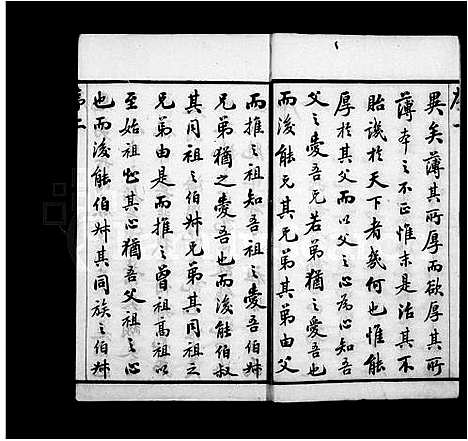 異矣薄其所厚而欲厚其所
薄本之不正惟末是治其不
貽譏於天下者幾何也惟能
厚於其父而以父之心為心知吾
父之愛吾兄若弟猶之愛吾也
而後能兄其兄弟其弟由父
而推之祖知吾祖之愛吾伯叔
兄弟猶之愛吾也而後能伯叔
其同祖之伯叔兄弟其同祖之
兄弟由是而推之曾祖高祖以
至始祖忖其心猶吾父祖之心
也而後能伯叔其同族之伯叔
序二